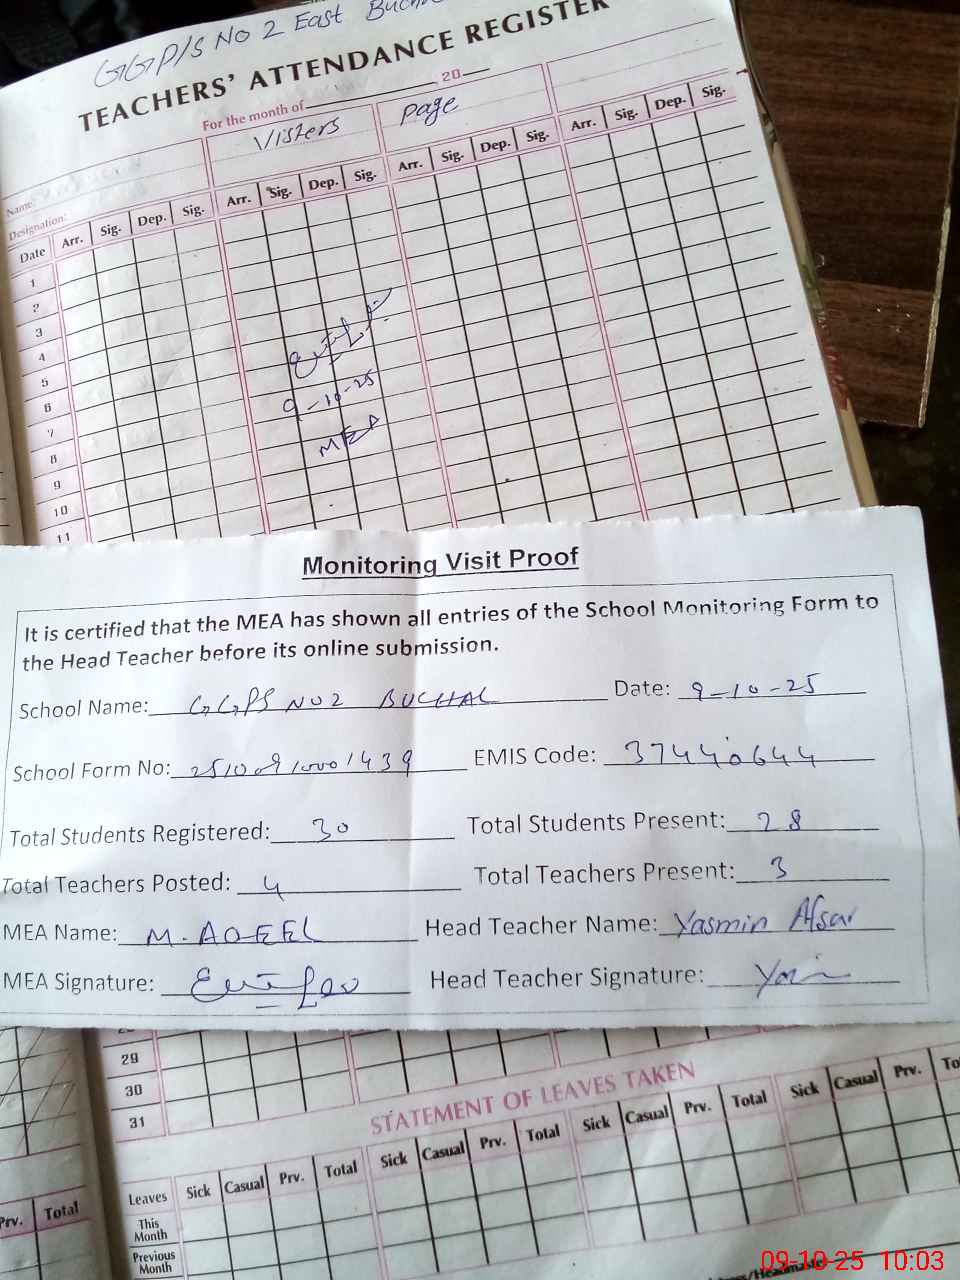 GGP/S No 2 East
TEACHERS' ATTENDANCE REGISTER
For the month of 20
Visters page
Name:
Designation:
Date Arr. Sig. Dep. Sig. Arr. Sig. Dep. Sig. Arr. Sig. Dep. Sig. Arr. Sig. Dep. Sig.
1
2
3
4
5
6
7
8
9
10
11
9-10-25
MEA
Monitoring Visit Proof
It is certified that the MEA has shown all entries of the School Monitoring Form to
the Head Teacher before its online submission.
School Name: GGPS NO2 BUCHAL Date: 9-10-25
School Form No: EMIS Code: 37440644
Total Students Registered: 30 Total Students Present: 28
Total Teachers Posted: 4 Total Teachers Present: 3
MEA Name: M. AQEEL Head Teacher Name: Yasmin Afsar
MEA Signature: Head Teacher Signature:
29
30
31
STATEMENT OF LEAVES TAKEN
Leaves Sick Casual Prv. Total Sick Casual Prv. Total Sick Casual Prv. Total Sick Casual Prv. To
This
Month
Previous
Month
Prv. Total
09-10-25 10:03